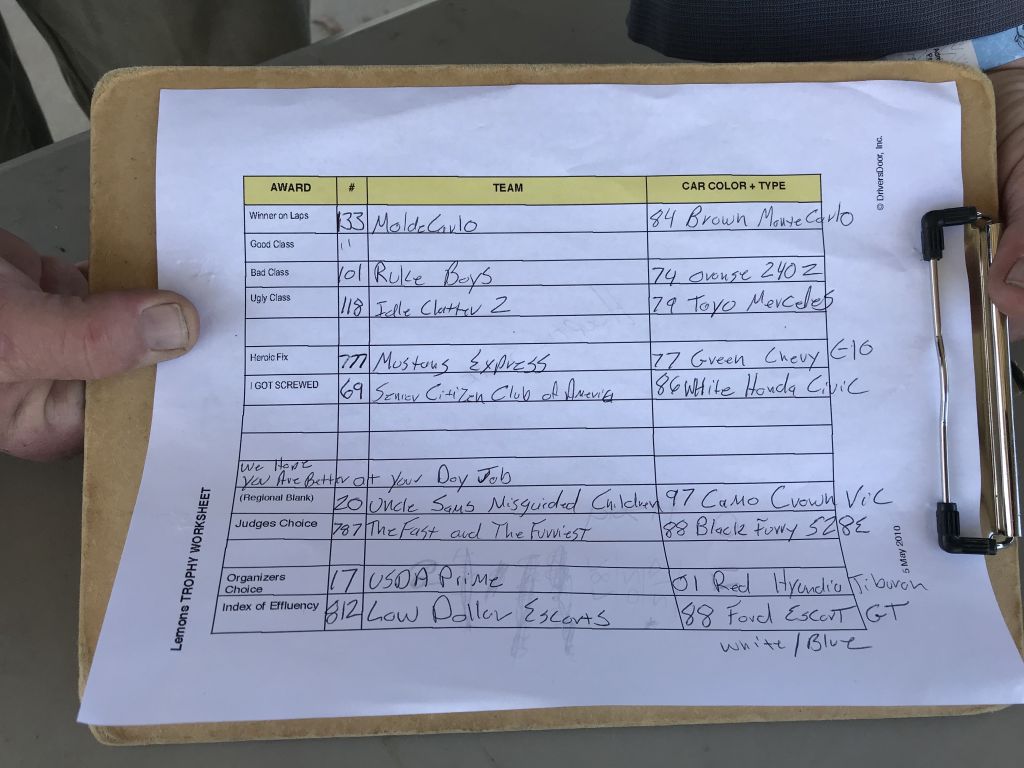 © DriversDoor, Inc.
AWARD # TEAM CAR COLOR + TYPE
Winner on Laps 133 MoldeCarlo 84 Brown Monte Carlo
Good Class 11
Bad Class 101 Ruke Boys 74 orange 240 Z
Ugly Class 118 Idle Clatter 2 79 Toyo Mercedes
Heroic Fix 777 Mustang Express 77 Green Chevy C10
I GOT SCREWED 69 Senior Citizen Club of America 86 White Honda Civic
We Hope
You Are Better at Your Day Job
(Regional Blank) 20 Uncle Sams Misguided Children 97 Camo Crown Vic
Judges Choice 787 The Fast and The Furriest 88 Black Furry 528E
Organizers
Choice 17 USDA Prime 01 Red Hyundia Tiburon
Index of Effluency 812 Low Dollar Escorts 88 Ford Escort GT
White / Blue
Lemons TROPHY WORKSHEET
5 May 2010